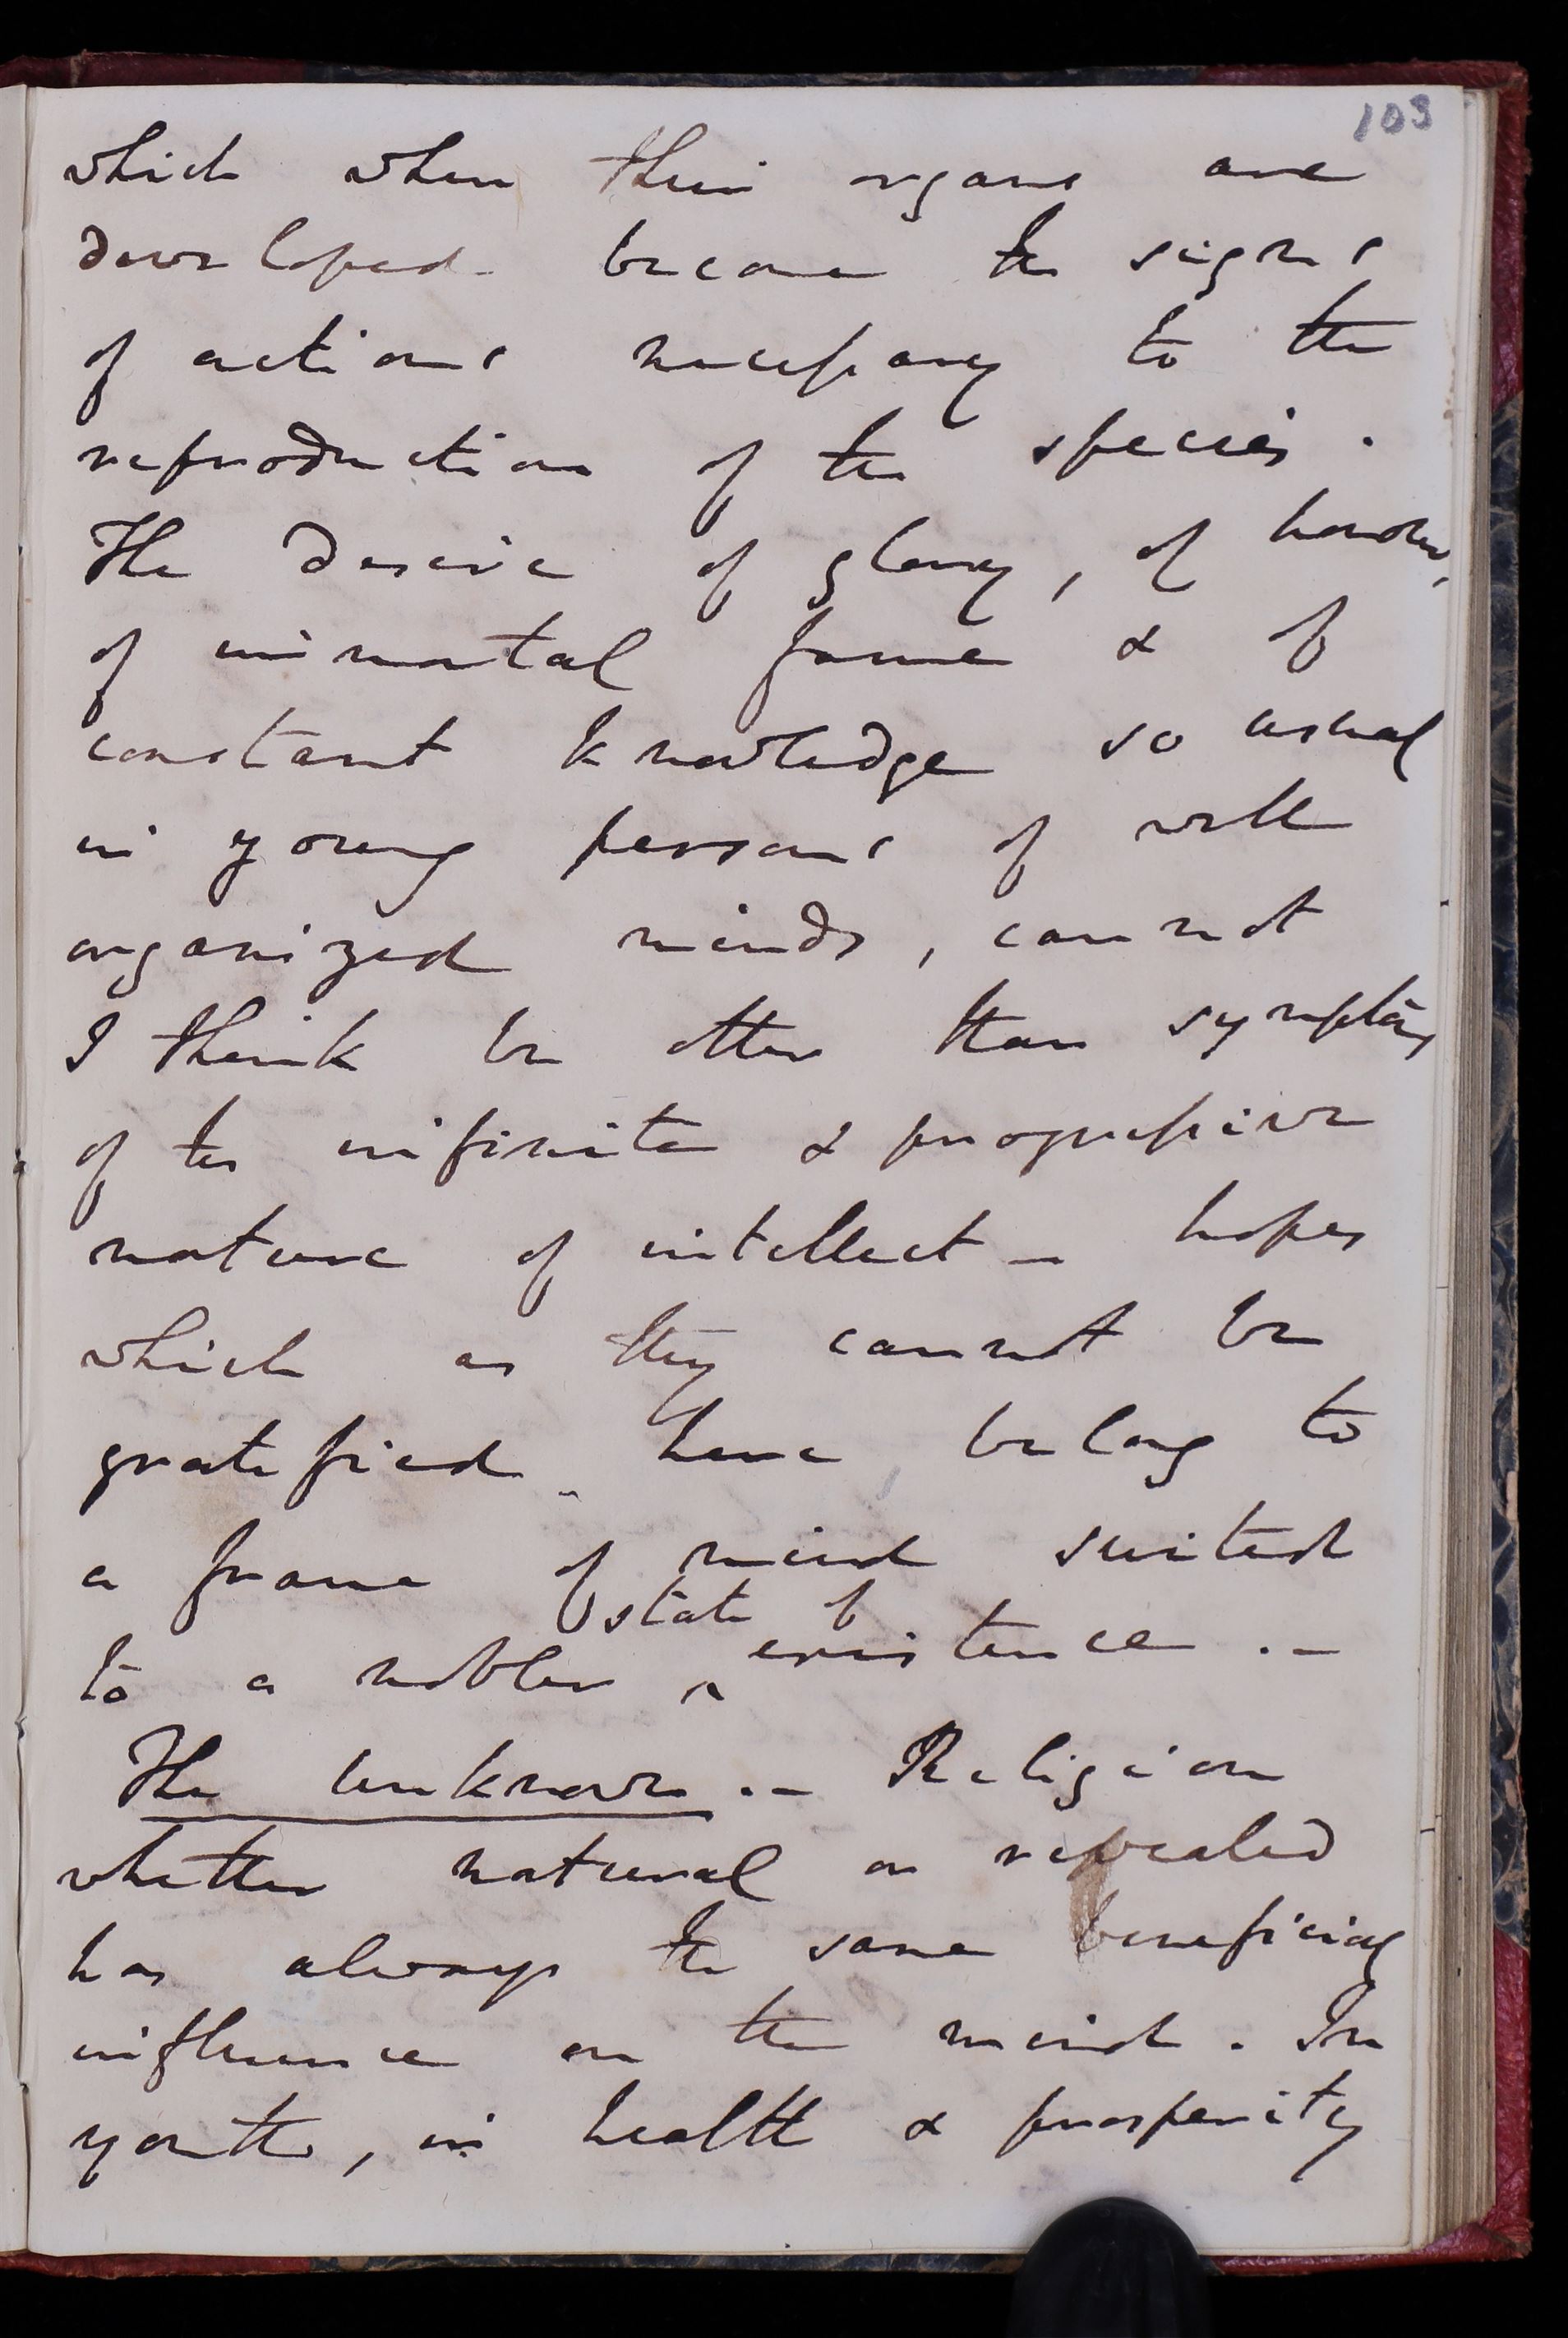 103
which when their organs are
developed become the signs
of actions necessary to the
reproduction of the species.
The desire of glory, of honour,
of immortal fame & of
constant knowledge so usual
in young persons of well
organized minds, cannot
I think be other than symptoms
of the infinite & progressive
nature of intellect – hopes
which as they cannot be
gratified here belong to
a frame of mind suited
state of
to a nobler ^ existence. –
The Unknown. – Religion
whether natural or revealed
has always the same beneficial
influence on the mind. In
youth, in health & prosperity